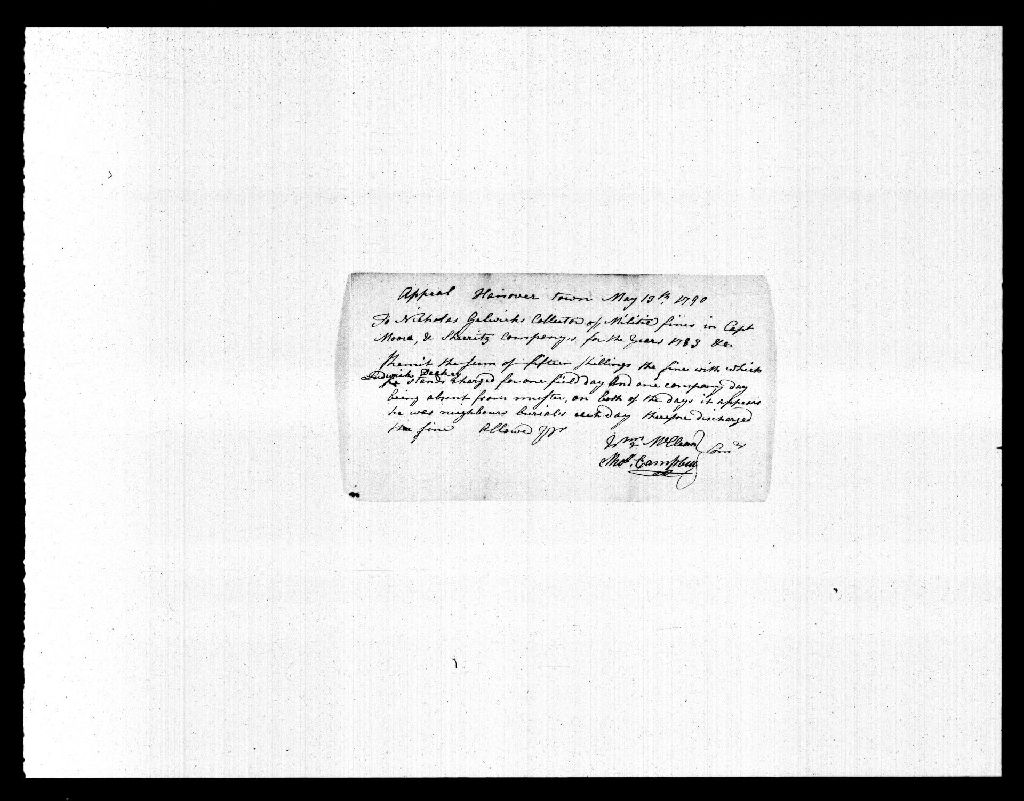 Appeal Hanover Town May 13th 1790
To Nicholas Gelwicks Collector of Militia fines in Capt
& Sherritz companys for the years 1783 &c.
Remit the sum of fifteen Shillings the fine with which
he stands charged for one field day and one company day
being absent from muster, on both of the days it appears
he was neighbours burials each day therefore discharged
fine Allowed
Wm McClean
Thos. Campbell